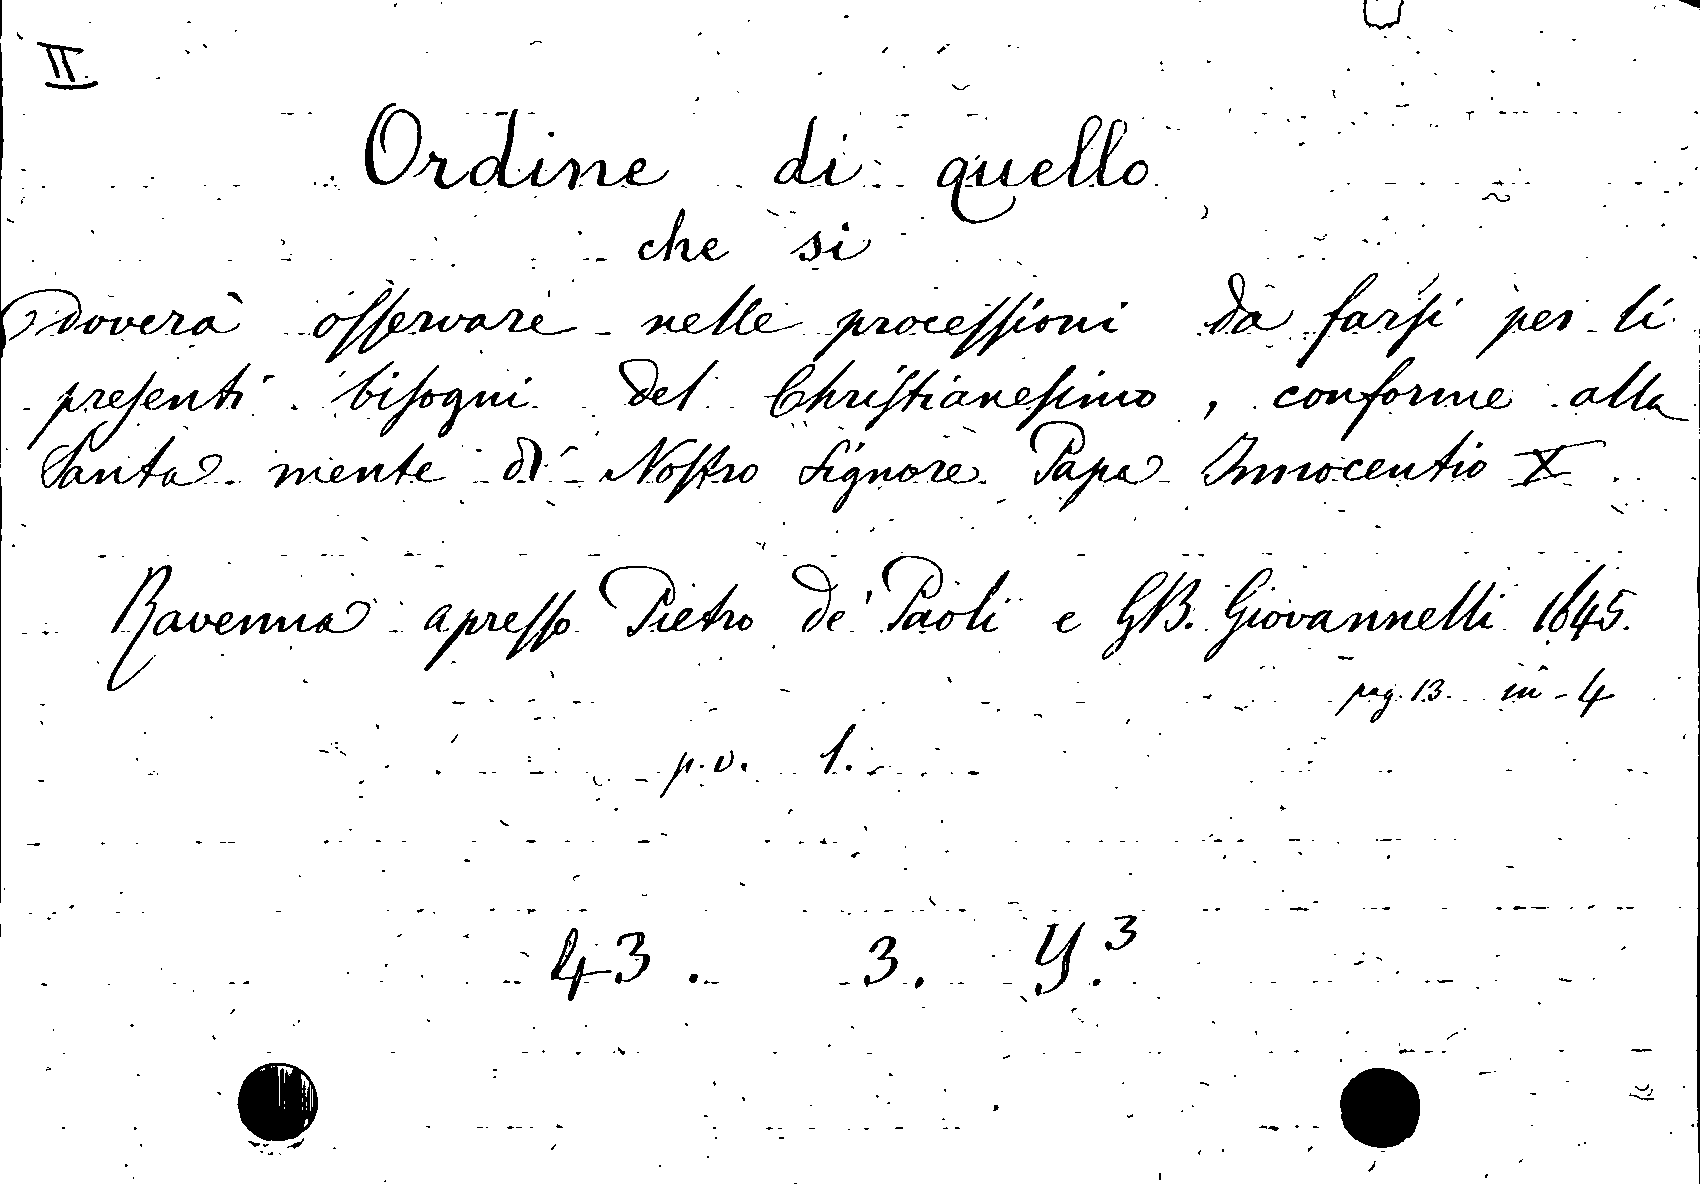 II.
Ordine di quello
che si
doverà osservare nelle processioni da farsi per li
presenti bisogni del Christianesimo, conforme alla
Santa mente di Nostro Signore Papa Innocentio X
Ravenna apresso Pietro de' Paoli e GB. Giovannelli 1645.
pag. 13. in-4
p.v. 1.
43. 3. Y.3